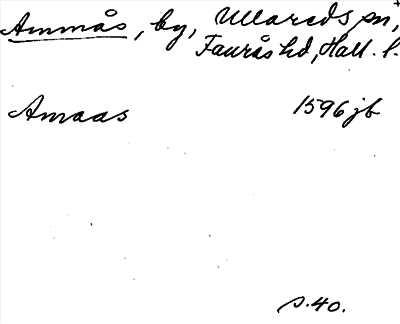 Ammås, by, Ullareds sn,
Faurås hd, Hall. l.
Amaas 1596 jb
s. 40.